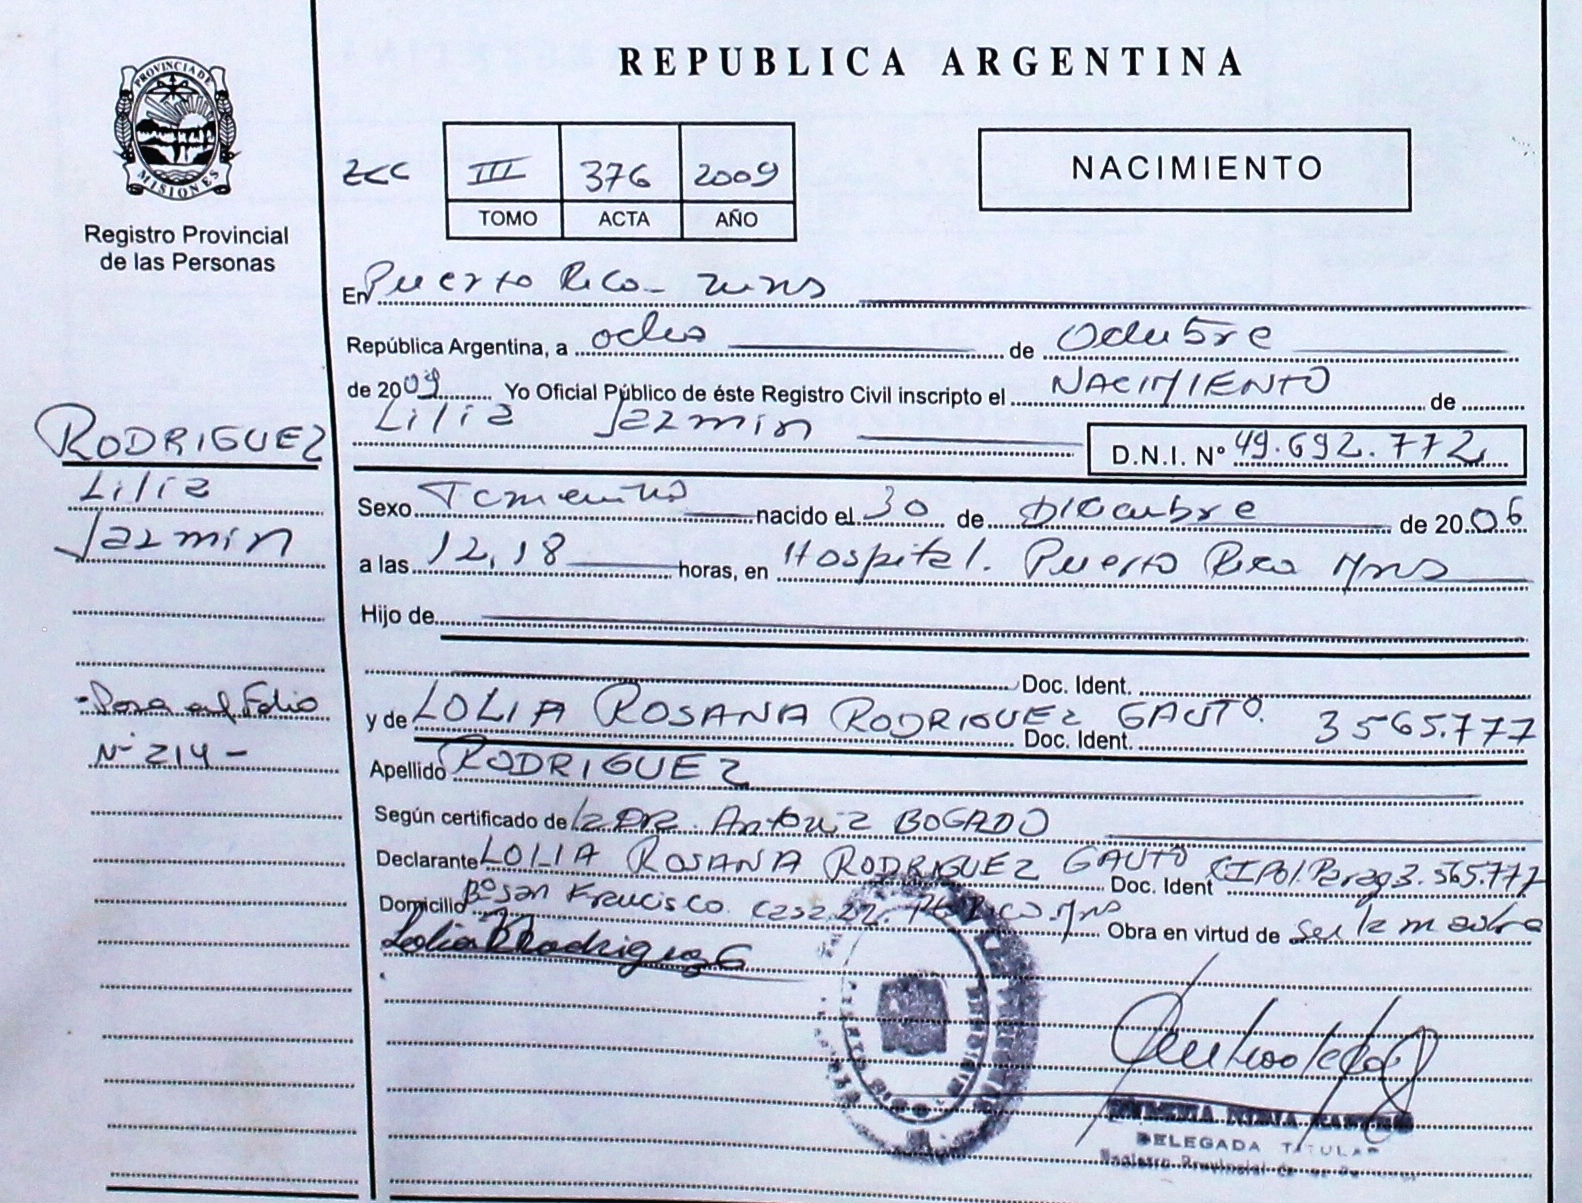 REPUBLICA ARGENTINA
PROVINCIA DE
MISIONES
Registro Provincial
de las Personas
ZCC III 376 2009
TOMO ACTA AÑO
NACIMIENTO
En Puerto Rico - Mns
República Argentina, a ocho de Octubre
de 2009 Yo Oficial Público de éste Registro Civil inscripto el NACIMIENTO de
Lilia Jazmin
D.N.I. Nº 49.692.772
RODRIGUEZ
Lilia
Jazmin
Sexo Femenino nacido el 30 de Diciembre de 2006
a las 12,18 horas, en Hospital. Puerto Rico Mns
Hijo de
Doc. Ident.
y de LOLIA ROSANA RODRIGUEZ GAUTO. Doc. Ident. 3565.777
- Pasa al Folio
Nº 214 -
Apellido RODRIGUEZ
Según certificado de la DRA. Antonia BOGADO
Declarante LOLIA ROSANA RODRIGUEZ GAUTO Doc. Ident CIPol.Parag 3.565.777
Domicilio Bº San Francisco. Casa 22. Pto Rico. Mns Obra en virtud de ser la madre
Lolia R Rodriguez G
DELEGADA TITULAR
Registro Provincial de